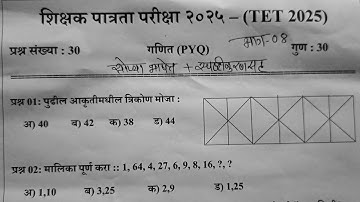 शिक्षक पात्रता परीक्षा २०२५ – (TET 2025)
प्रश्न संख्या : 30 गणित (PYQ) भाग-08 गुण : 30
सोप्या भाषेत + स्पष्टीकरणासह
प्रश्न 01: पुढील आकृतीमधील त्रिकोण मोजा :
अ) 40 ब) 42 क) 38 ड) 44
प्रश्न 02: मालिका पूर्ण करा :: 1, 64, 4, 27, 6, 9, 8, 16, ?, ?
अ) 1,10 ब) 3,25 क) 2,9 ड) 1,25